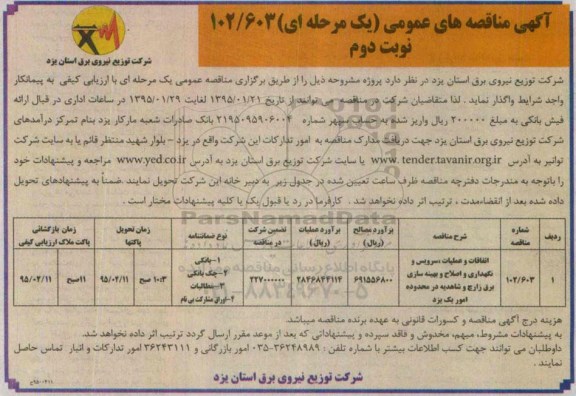 آگهی مناقصه های عمومی (یک مرحله ای) ۱۰۲/۶۰۳
نوبت دوم
شرکت توزیع نیروی برق استان یزد
شرکت توزیع نیروی برق استان یزد در نظر دارد پروژه مشروحه ذیل را از طریق برگزاری مناقصه عمومی یک مرحله ای با ارزیابی کیفی به پیمانکار
واجد شرایط واگذار نماید . لذا متقاضیان شرکت در مناقصه می توانند از تاریخ ۱۳۹۵/۰۱/۲۱ لغایت ۱۳۹۵/۰۱/۲۹ در ساعات اداری در قبال ارائه
فیش بانکی به مبلغ ۲۰۰۰۰۰ ریال واریز شده به حساب سپهر شماره ۲۱۹۵۰۹۵۹۰۶۰۰۴ بانک صادرات شعبه مارکار یزد بنام تمرکز درآمدهای
شرکت توزیع نیروی برق استان یزد جهت دریافت مدارک مناقصه به امور تدارکات این شرکت واقع در یزد - بلوار شهید منتظر قائم یا به سایت شرکت
توانیر به آدرس www.tender.tavanir.org.ir یا سایت شرکت توزیع برق استان یزد به آدرس www.yed.co.ir مراجعه و پیشنهادات خود
را باتوجه به مندرجات دفترچه مناقصه ظرف ساعت تعیین شده در جدول زیر به دبیر خانه این شرکت تحویل نمایند .ضمناً به پیشنهادهای تحویل
داده شده بعد از انقضاءمدت ، ترتیب اثر داده نخواهد شد . کارفرما در رد یا قبول یک یا کلیه پیشنهادات مختار است .
ردیف شماره مناقصه شرح مناقصه برآورد مصالح (ریال) برآورد عملیات (ریال) تضمین شرکت در مناقصه نوع ضمانتنامه زمان تحویل پاکتها زمان بازگشائی پاکت ملاک ارزیابی کیفی
۱ ۱۰۲/۶۰۳ اتفاقات و عملیات ،سرویس و نگهداری و اصلاح و بهینه سازی برق زارچ و شاهدیه در محدوده امور یک یزد ۶۹۱۵۵۶۸۰۰ ۲۸۴۶۸۴۳۱۱۴ ۲۲۷۰۰۰۰۰۰ ۱-بانکی ۲-چک بانکی ۳-مطالبات ۴-اوراق مشارکت بی نام ۱۰:۳ صبح ۹۵/۰۲/۱۱ ۱۱صبح ۹۵/۰۲/۱۱
ParsNamadData
پایگاه اطلاع رسانی مناقصه
۰۲۱-۸۸۳۴۹۶۷۰-۵
هزینه درج آگهی مناقصه و کسورات قانونی به عهده برنده مناقصه میباشد.
به پیشنهادات مشروط، مبهم، مخدوش و فاقد سپرده و پیشنهاداتی که بعد از موعد مقرر ارسال گردد ترتیب اثر داده نخواهد شد.
داوطلبان می توانند جهت کسب اطلاعات بیشتر با شماره تلفن : ۳۶۲۴۸۹۸۹-۰۳۵ امور بازرگانی و ۳۶۲۴۳۱۱۱ امور تدارکات و انبار تماس حاصل
نمایند .
شرکت توزیع نیروی برق استان یزد